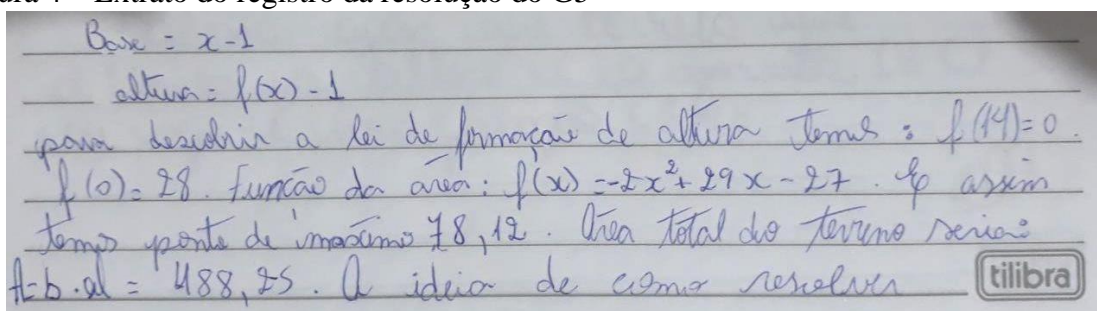 Figura 4 – Extrato do registro da resolução do G5
Base = x-1
altura = f(x) - 1
para descobrir a lei de formação de altura temos : f(14)=0.
f(0)= 28. função da área: f(x) =-2x²+29x-27. E assim
temos ponto de máximo 78,12. Área total do terreno seria:
A=b.al = 488,25. A ideia de como resolver
tilibra